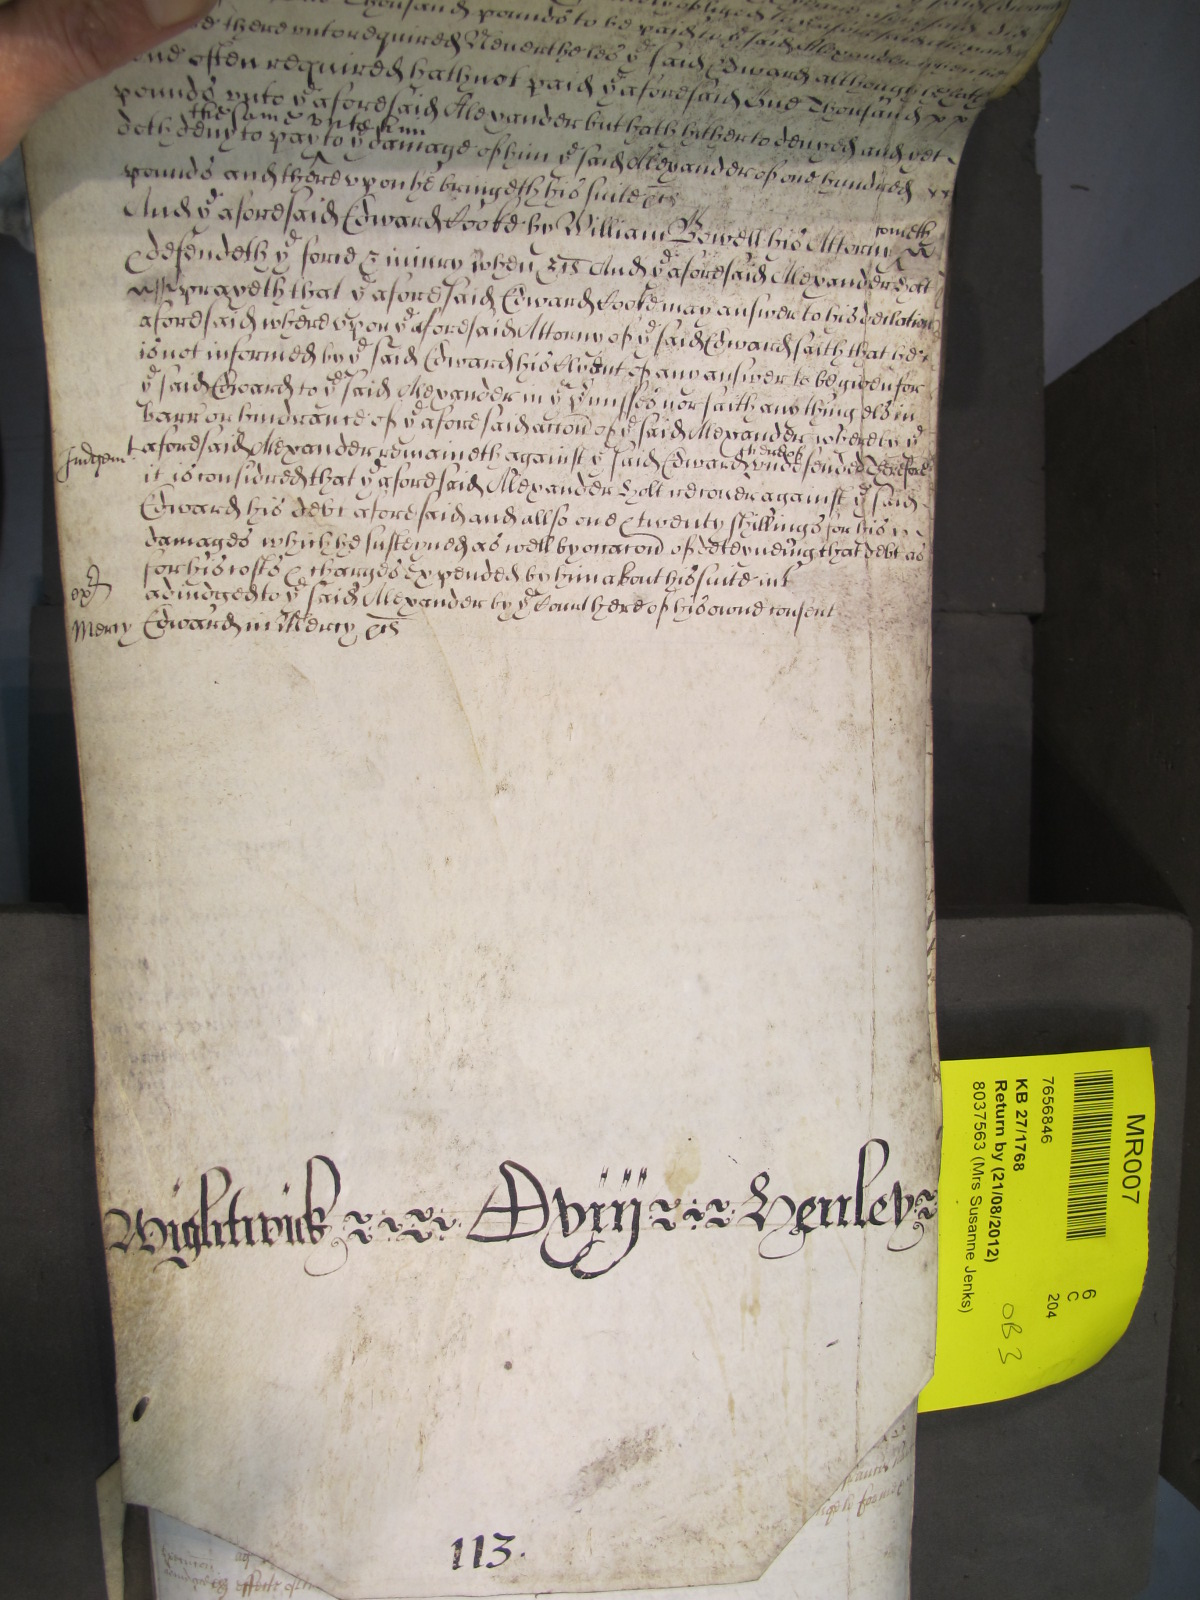 Thousand pounds to be paid to yͤ said Alexander
there unto required Neverthelesse yͤ said Edward although
often required hath not paid yͤ aforesaid One Thousand
pounds unto yͤ aforesaid Alexander but hath hitherto denyed and yet
the same unto him
doth deny to pay to yͤ damage of him yͤ said Alexander of one hundred
pounds and thereupon he bringeth his suite &c
And yͤ aforesaid Edward Cooke by William Bowell his Attorny
cometh
defendeth yͤ force & iniury when &c And yͤ aforesaid Alexander Holt
prayeth that yͤ aforesaid Edward Cooke may answer to his declaration
aforesaid whereupon yͤ aforesaid Attorny of yͤ said Edward saith that he
is not informed by yͤ said Edward his Clyent of any answer to be given for
yͤ said Edward to yͤ said Alexander in yͤ p'misses nor saith any thing els in
barr or hindrance of yͤ aforesaid accon of yͤ said Alexander whereby yͤ
Judgemt aforesaid Alexander remaineth against yͤ said Edward undefended Therefore
thereof
it is considred that yͤ aforesaid Alexander Holt recover against yͤ said
Edward his debt aforesaid and allso one & twenty shillings for his
damages which he susteyned as well by occacon of deteyneing that debt as
for his costs & charges expended by him about his suite in t
adiudged to yͤ said Alexander by yͤ Court here of his owne consent
Mercy Edward in Mercy &c
Wightwick Dviij Henley
113.
MR007
7656846
KB 27/1768
Return by (21/08/2012)
8037563 (Mrs Susanne Jenks)
6
C
204
OB 3